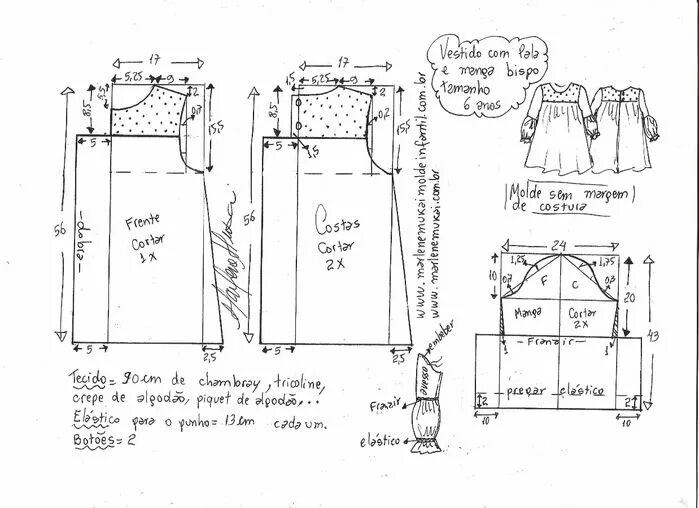 Vestido com Pala
e manga bispo
tamanho
6 anos
17
5,25
9
5,5
8,5
2
0,7
15,5
5
56
dobra
Frente
Cortar
1x
5
2,5
17
1,5
5,25
9
8,5
2
0,7
15,5
1,5
5
56
Costas
Cortar
2x
5
2,5
www.marlenemukaimoldeinfantil.com.br
www.marlenemukai.com.br
Molde sem margem
de costura
24
1,25
1,75
10
0,7
F
C
0,3
Manga
Cortar
2x
20
43
1
1
Franzir
pregar elástico
2
2
10
10
embeber
avesso
Franzir
elástico
Tecido= 90cm de chambray, tricoline,
crepe de algodão, piquet de algodão,...
Elástico para o punho= 13cm cada um.
Botões= 2